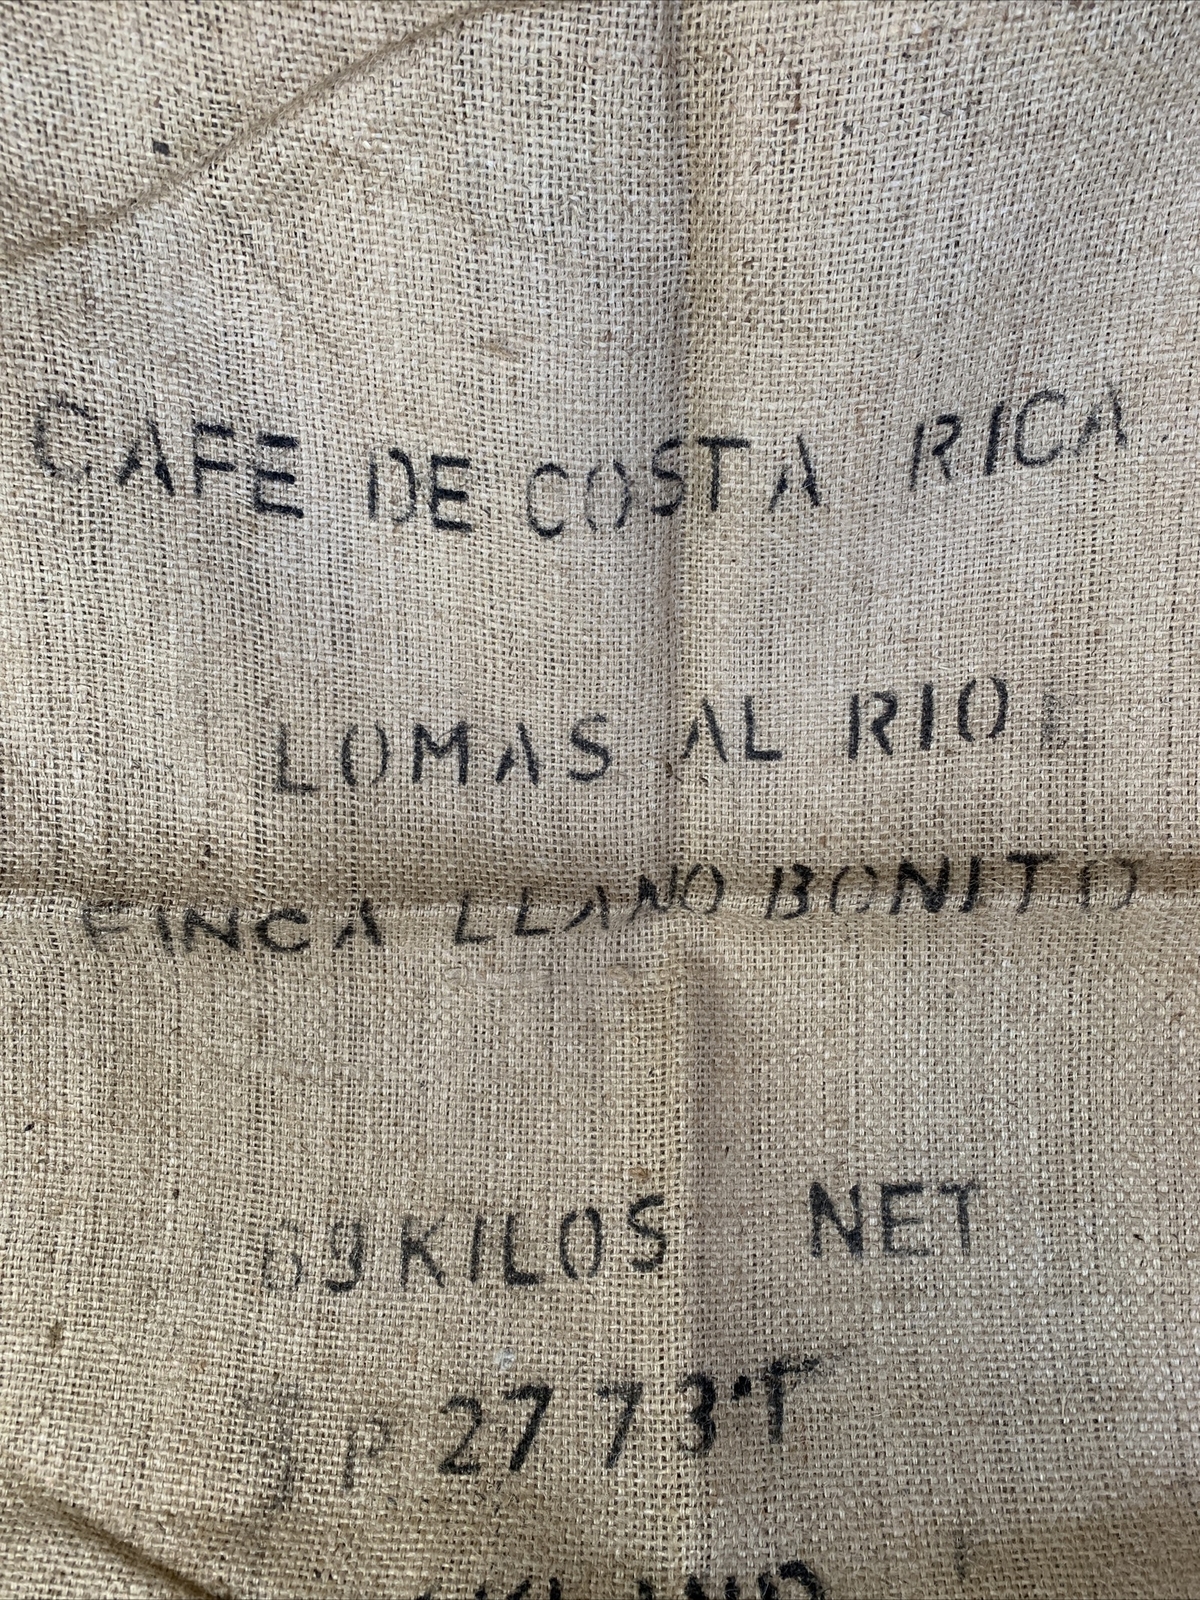 CAFE DE COSTA RICA
LOMAS AL RIO
FINCA LLANO BONITO
69 KILOS NET
P 2773·T